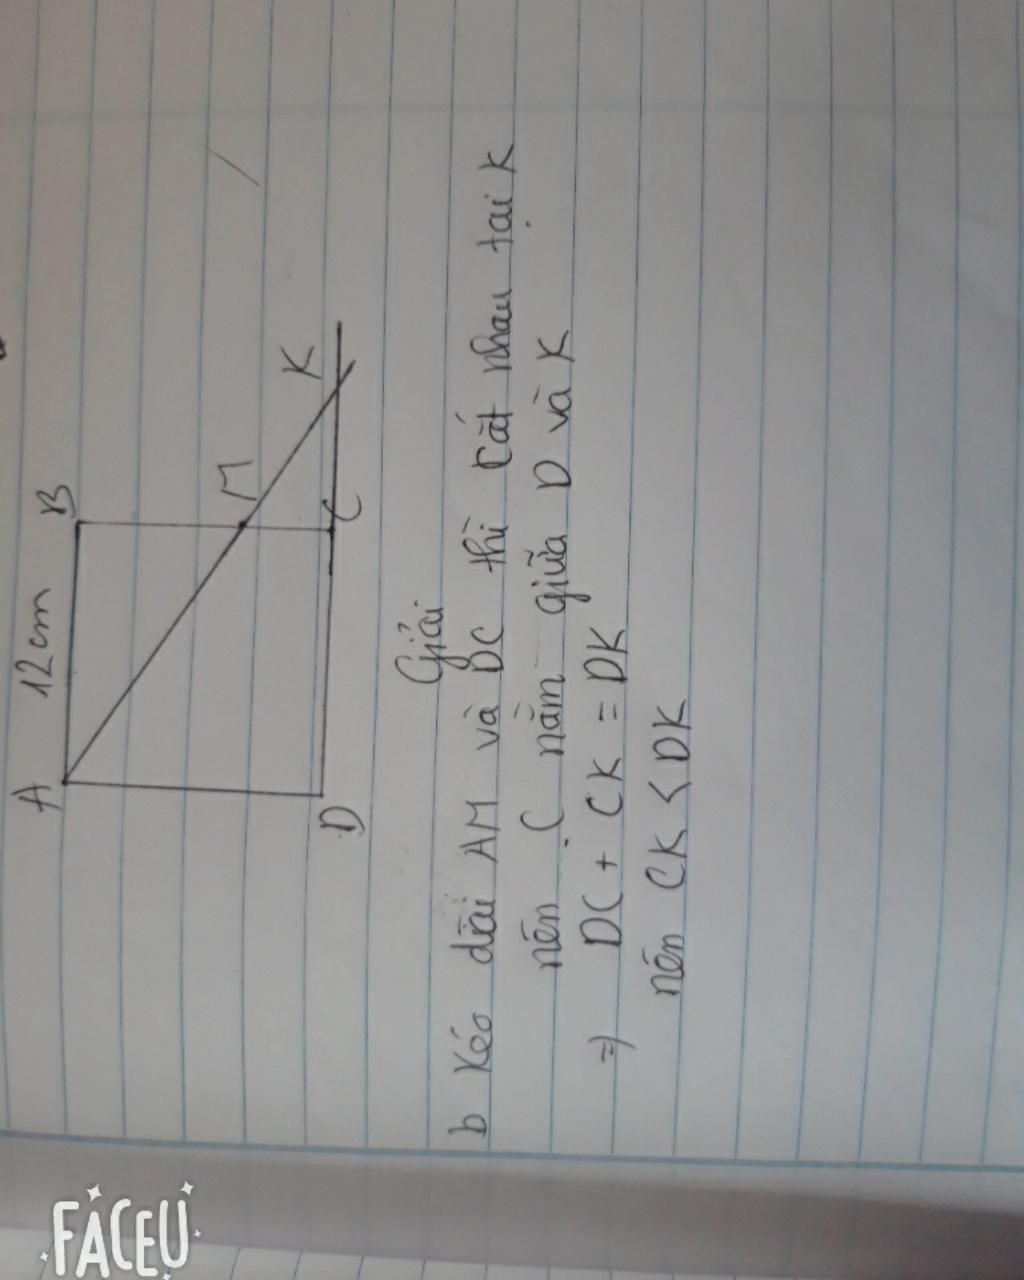 A 12cm B
M
K
D C
Giải
b Kéo dài AM và DC thì cắt nhau tại K
nên C nằm giữa D và K
=) DC + CK = DK
nên CK < DK
FACEU